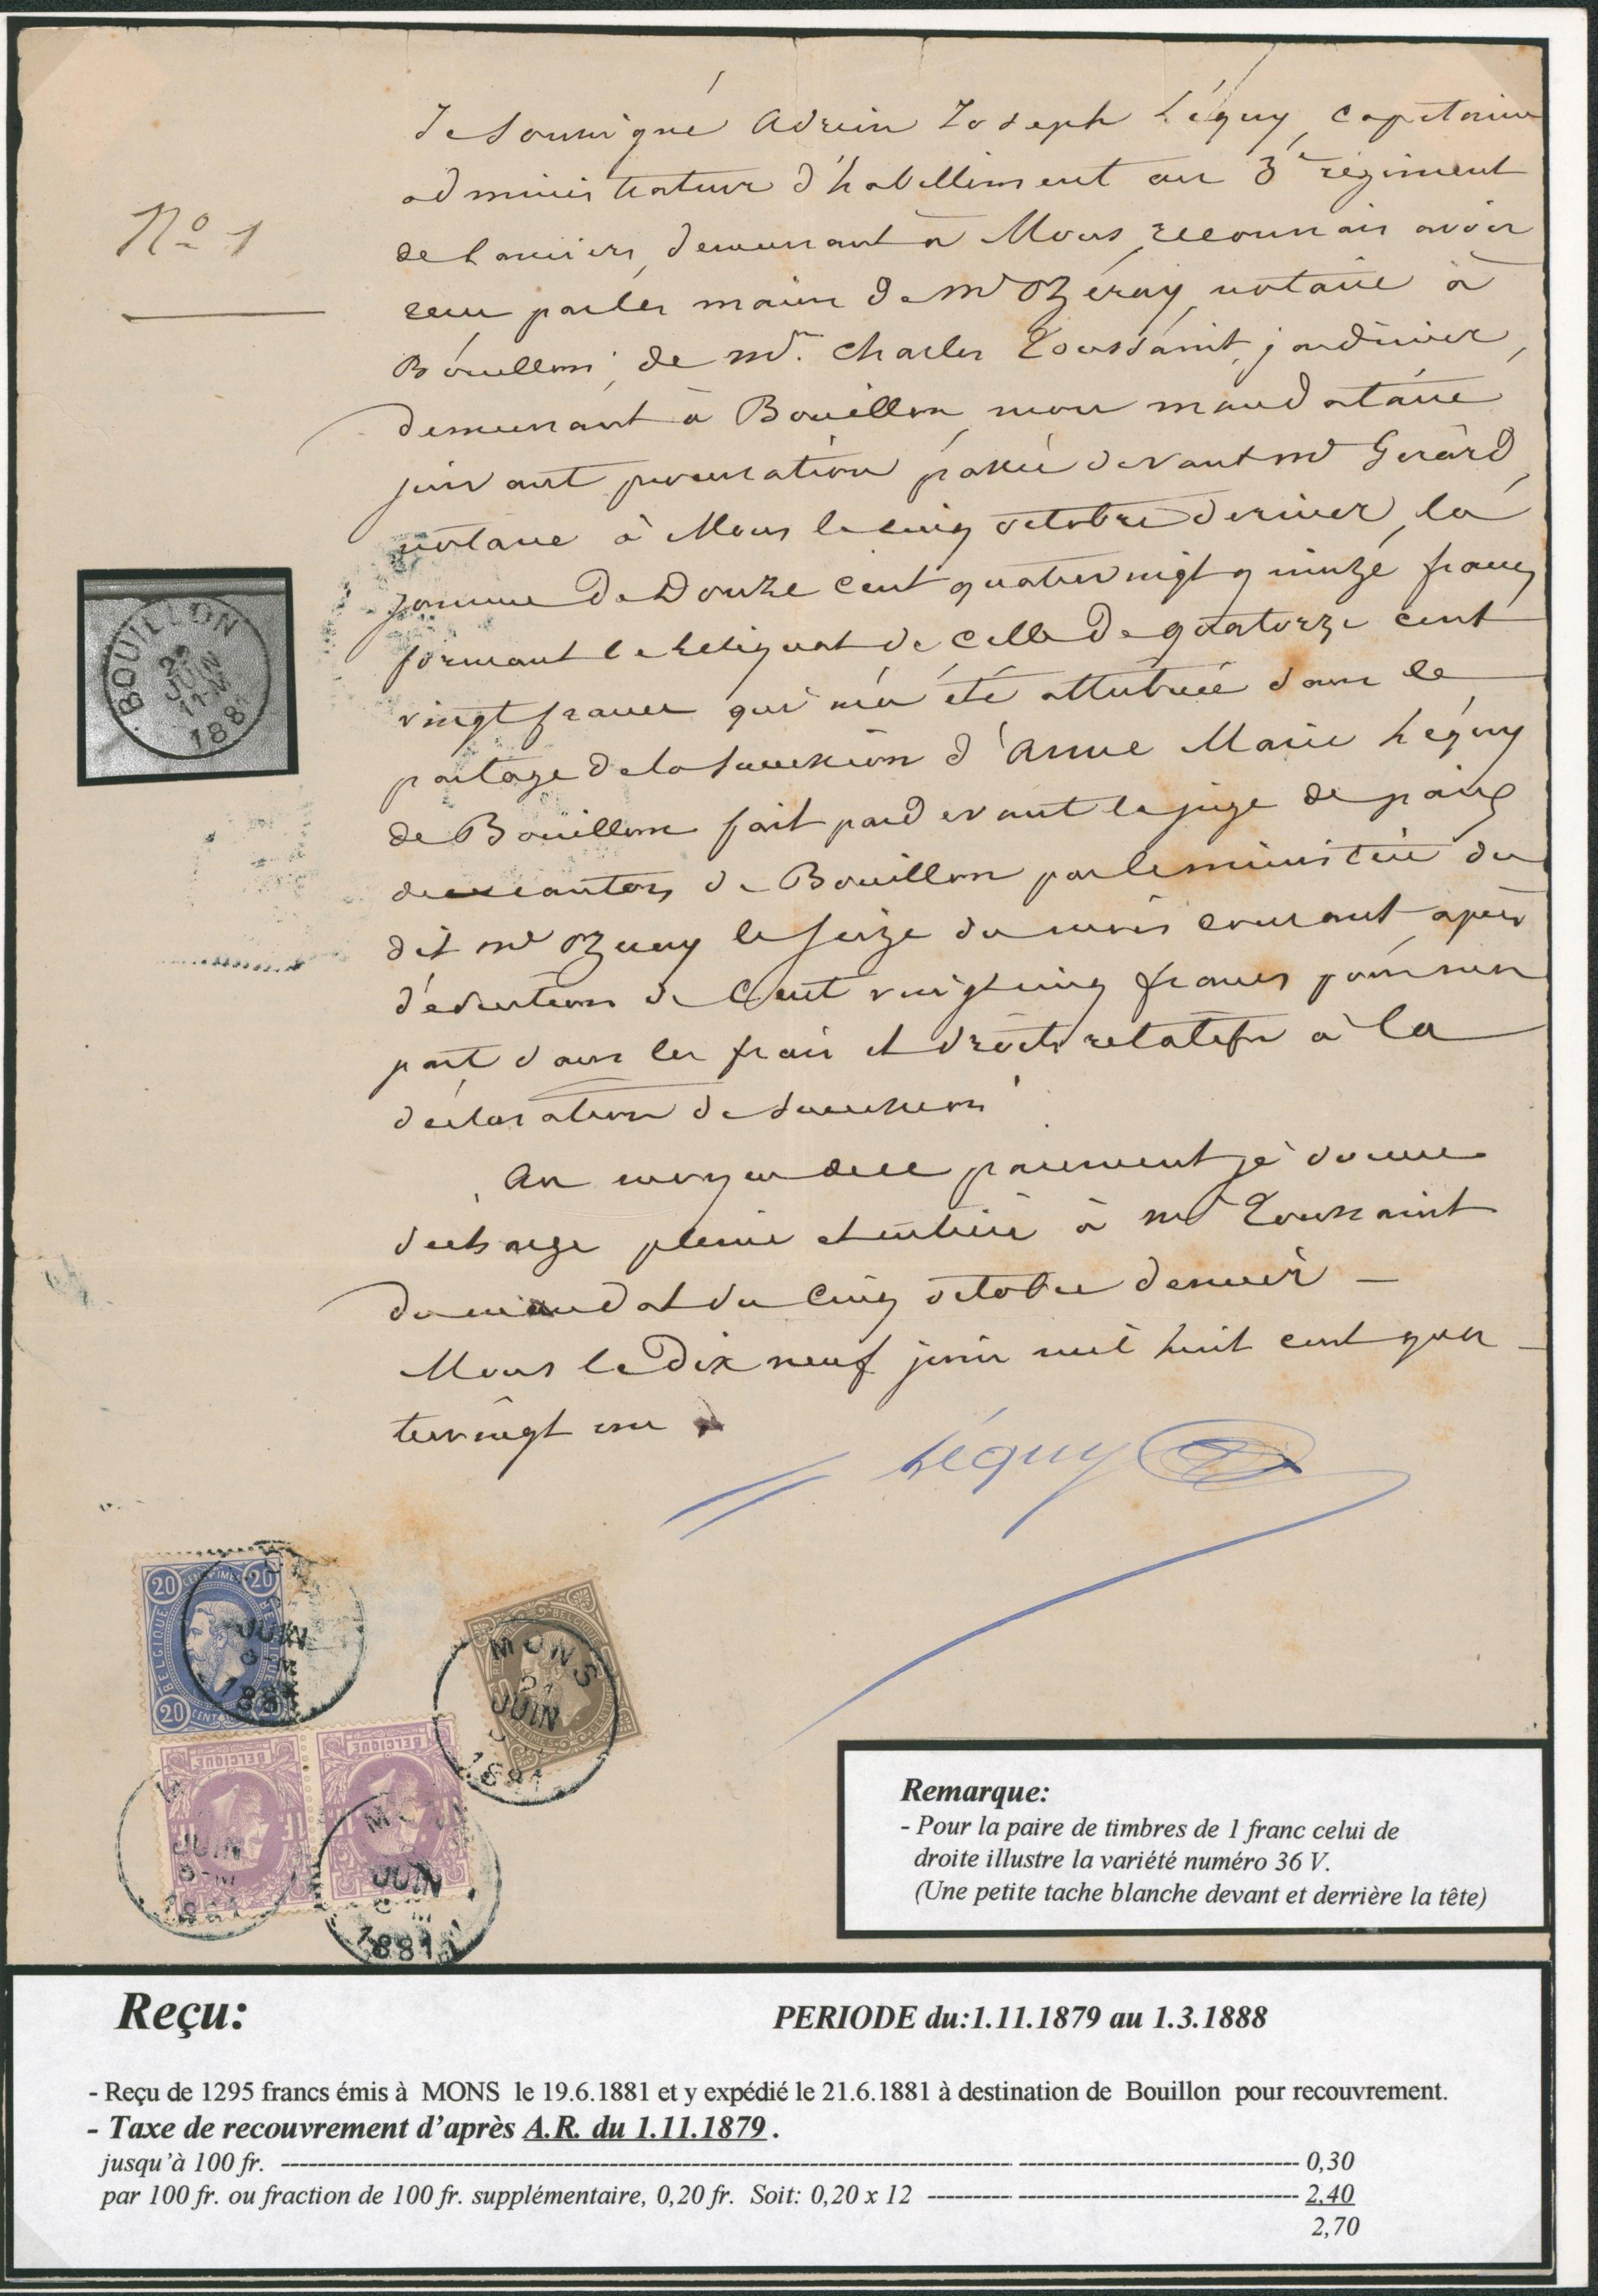 Je soussigné Adrien Joseph Léguy, capitaine
administrateur d'habillement au 3e régiment
de lanciers, demeurant à Mons, reconnais avoir
reçu par les mains de Mr Ozeray, notaire à
Bouillon, de Mr. Charles Toussaint, jardinier,
demeurant à Bouillon, mon mandataire
suivant procuration passée devant Mr Gerard,
notaire à Mons le cinq octobre dernier, la
somme de Douze cent quatrevingt quinze francs
formant le reliquat de celle de quatorze cent
vingt francs qui m'a été attribuée dans le
partage de la succession d'Anne Marie Léguy
de Bouillon fait pardevant le juge de paix
du canton de Bouillon par le ministère du
dit Mr Ozeray le seize du mois courant, après
déduction de Cent vingt cinq francs pour mon
part dans les frais et droits relatifs à la
déclaration de succession
Au moyen de ce paiement je donne
décharge pleine et entière à Mr Toussaint
du mandat du cinq octobre dernier —
Mons le Dix neuf juin mil huit cent qua-
trevingt un
Léguy
No 1
BOUILLON
JUIN
11-M
188
20 CENTIMES 20
BELGIQUE
20 20
JUIN
8-M
1881
BELGIQUE
MONS
21
JUIN
1881
BELGIQUE BELGIQUE
1F
JUIN
8-M
1881
JUIN
1881
Remarque:
- Pour la paire de timbres de 1 franc celui de
droite illustre la variété numéro 36 V.
(Une petite tache blanche devant et derrière la tête)
Reçu: PERIODE du:1.11.1879 au 1.3.1888
- Reçu de 1295 francs émis à MONS le 19.6.1881 et y expédié le 21.6.1881 à destination de Bouillon pour recouvrement.
- Taxe de recouvrement d'après A.R. du 1.11.1879.
jusqu'à 100 fr. ---------- 0,30
par 100 fr. ou fraction de 100 fr. supplémentaire, 0,20 fr. Soit: 0,20 x 12 ---------- 2,40
2,70